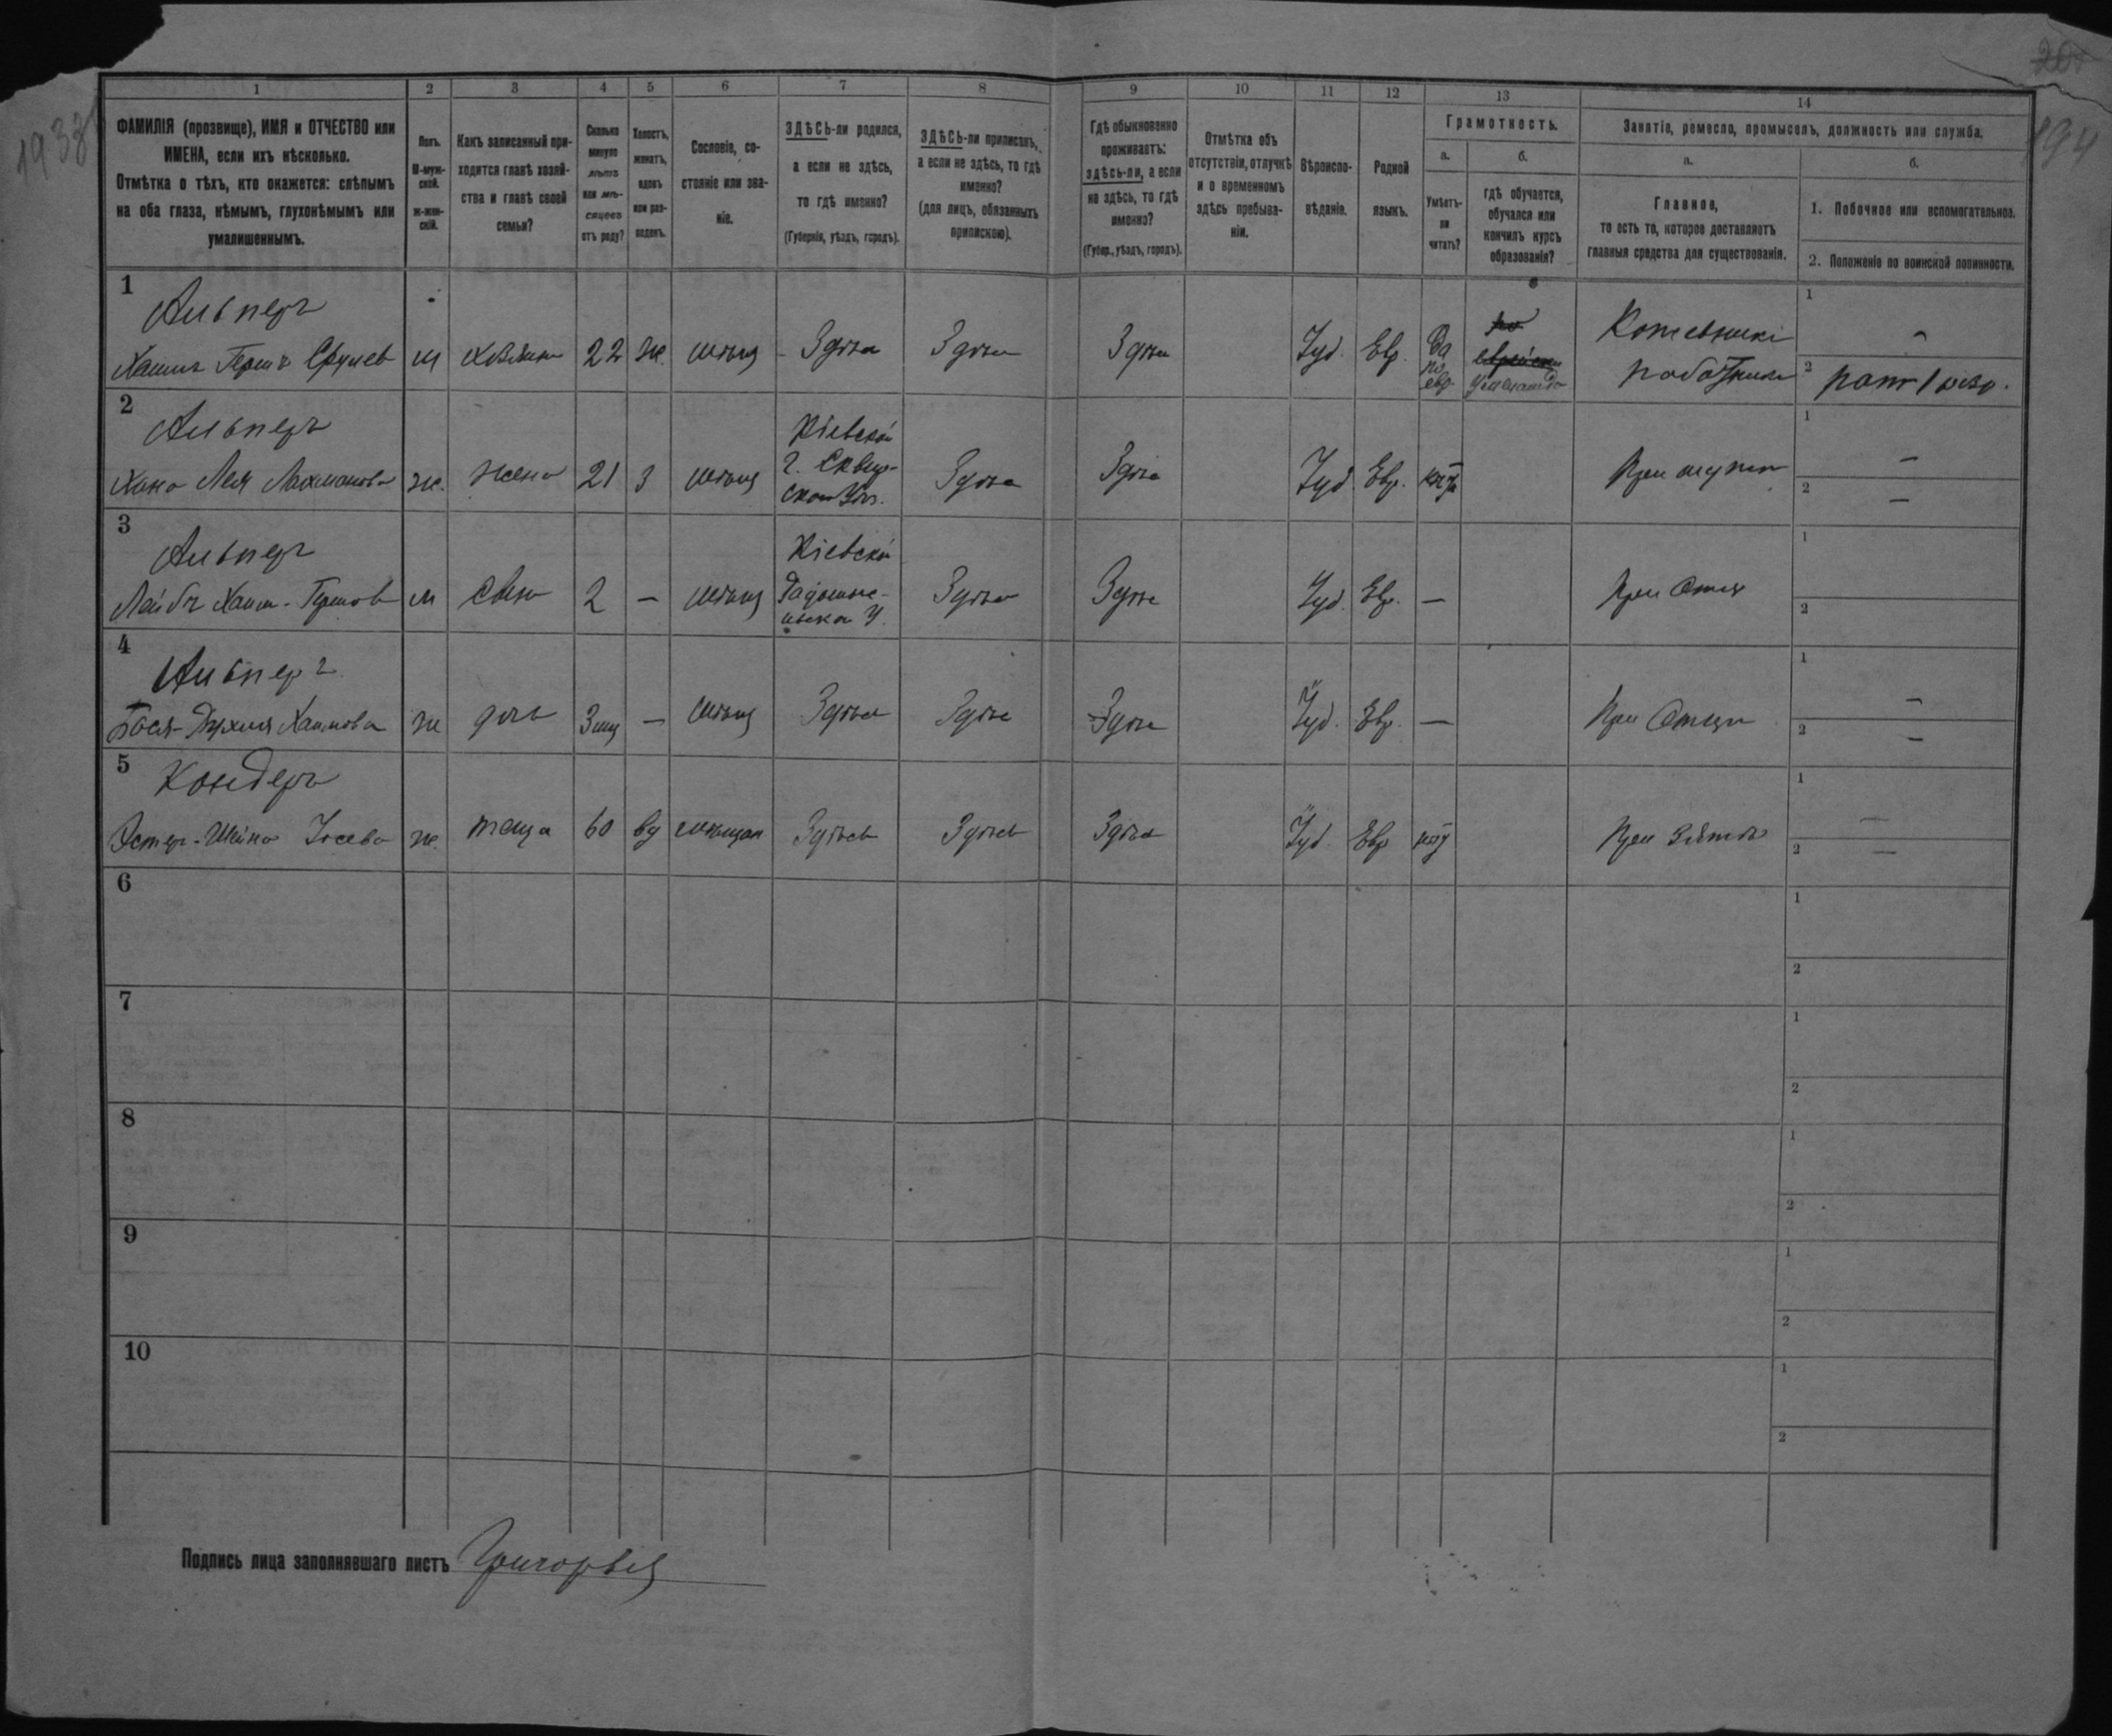 1 2 3 4 5 6 7 8 9 10 11 12 13 14
ФАМИЛІЯ (прозвище), ИМЯ и ОТЧЕСТВО или
ИМЕНА, если ихъ нѣсколько.
Отмѣтка о тѣхъ, кто окажется: слѣпымъ
на оба глаза, нѣмымъ, глухонѣмымъ или
умалишеннымъ.
Полъ.
М-муж-
ской.
ж-жен-
скій.
Какъ записанный при-
ходится главѣ хозяй-
ства и главѣ своей
семьи?
Сколько
минуло
лѣтъ
или мѣ-
сяцевъ
отъ роду?
Холостъ,
женатъ,
вдовъ
или раз-
веденъ.
Сословіе, со-
стояніе или зва-
ніе.
ЗДѢСЬ-ли родился,
а если не здѣсь,
то гдѣ именно?
(Губернія, уѣздъ, городъ).
ЗДѢСЬ-ли приписанъ,
а если не здѣсь, то гдѣ
именно?
(для лицъ, обязанныхъ
припискою).
Гдѣ обыкновенно
проживаетъ:
здѣсь-ли, а если
не здѣсь, то гдѣ
именно?
(Губер., уѣздъ, городъ).
Отмѣтка объ
отсутствіи, отлучкѣ
и о временномъ
здѣсь пребыва-
ніи.
Вѣроиспо-
вѣданіе.
Родной
языкъ.
Грамотность.
а.
Умѣетъ-
ли
читать?
б.
гдѣ обучается,
обучался или
кончилъ курсъ
образованія?
Занятіе, ремесло, промыселъ, должность или служба.
а.
Главное,
то есть то, которое доставляетъ
главныя средства для существованія.
б.
1. Побочное или вспомогательное.
2. Положеніе по воинской повинности.
1
Альперъ
Хаимъ Герш Сруліев м хозяин 22 ж. мѣщ Здѣсь Здѣсь Здѣсь Іуд. Евр. Да
по
евр.
по
еврейски
Кожевникъ
работникъ
1 -
2
2
Альперъ
Хана Лея Лахманова ж. жена 21 з мѣщ
Кіевской
г. Сквир-
ской Уѣз.
Здѣсь Здѣсь Іуд. Евр. нѣт При мужѣ
1 -
2 -
3
Альперъ
Лейбъ Хаим-Гершов м сын 2 - мѣщ
Кіевской
Радомыс-
льской У.
Здѣсь Здѣсь Іуд. Евр. - При Отцѣ
1
2
4
Альперъ
Бася-Рухля Хаимова ж дочь 3 мц - мѣщ Здѣсь Здѣсь Здѣсь Іуд. Евр. - При Отцѣ
1 -
2 -
5
Кондеръ
Эстер-Шейна Іосева ж. теща 60 вд мѣщан Здѣсь Здѣсь Здѣсь Іуд. Евр нѣт При Зятѣ
1 -
2 -
6
1
2
7
1
2
8
1
2
9
1
2
10
1
2
Подпись лица заполнявшаго листъ
194